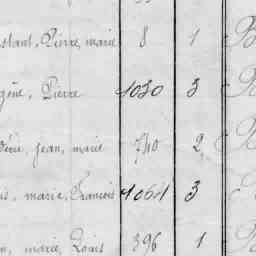 stant, Pierre, marie 8 1 B
gène, Pierre 1030 3 B
déric, Jean, marie 740 2 B
is, marie, François 1064 3
n, marie, Louis 396 1 B